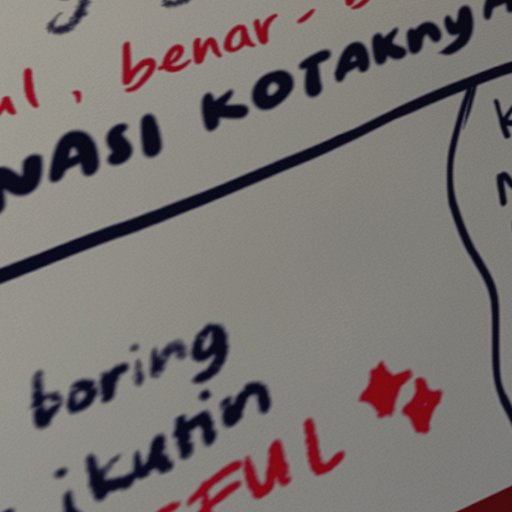 benar-
NASI KOTAKnyA
boring
ikutin
FUL